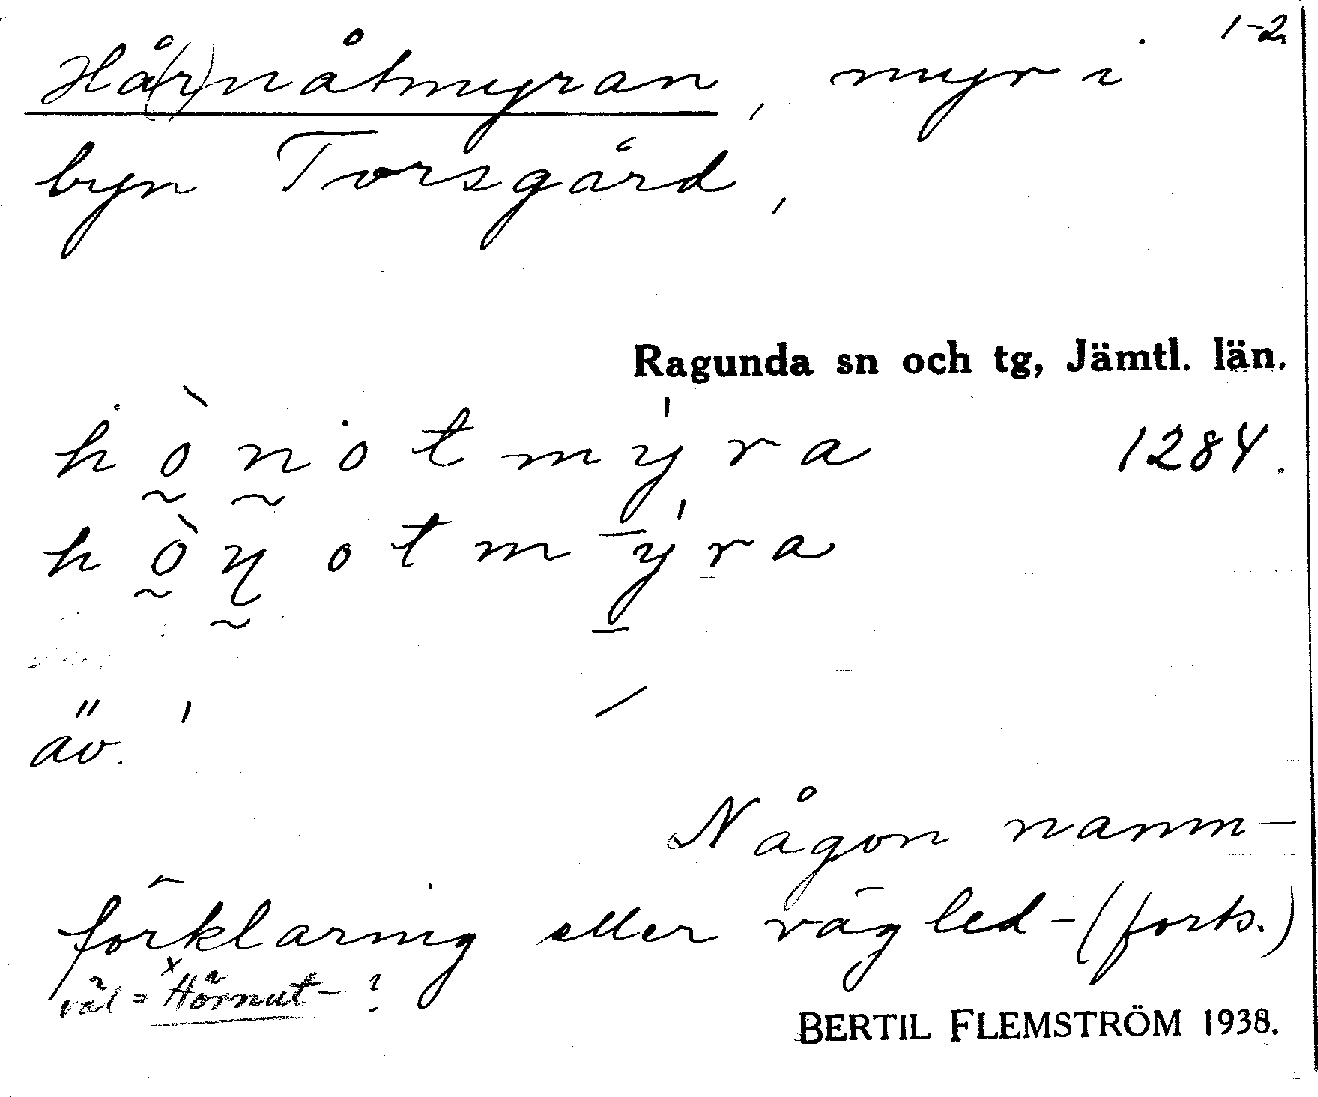 1-2.
Hå(r)nåtmyran, myr i
byn Torsgård,
Ragunda sn och tg, Jämtl. län.
hò̰n̰otmýra 1284.
hò̰ɳ̰otmýra
äv.
Någon namn-
förklaring eller vägled-(forts.)
väl = ˣHörnut- ?
BERTIL FLEMSTRÖM 1938.